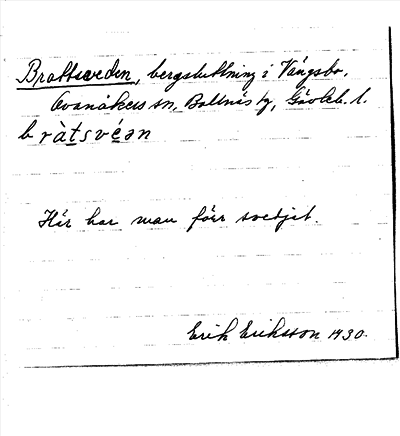 Brattsveden, bergsluttning i Vängsbo,
Ovanåkers sn, Bollnäs tg, Gävleb. l.
b ràtsvéən
Här har man förr svedjit.
Erik Eriksson 1930.